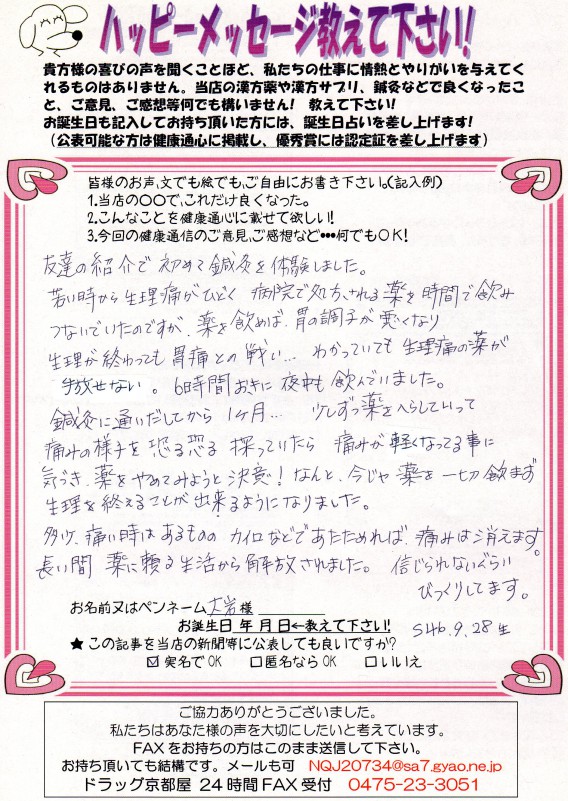 ハッピーメッセージ教えて下さい!
貴方様の喜びの声を聞くことほど、私たちの仕事に情熱とやりがいを与えてく
れるものはありません。当店の漢方薬や漢方サプリ、鍼灸などで良くなったこ
と、ご意見、ご感想等何でも構いません! 教えて下さい!
お誕生日も記入してお持ち頂いた方には、誕生日占いを差し上げます!
(公表可能な方は健康通心に掲載し、優秀賞には認定証を差し上げます)
皆様のお声、文でも絵でも、ご自由にお書き下さい。(記入例)
1.当店の〇〇で、これだけ良くなった。
2.こんなことを健康通心に載せて欲しい!
3.今回の健康通信のご意見、ご感想など・・・何でもOK!
友達の紹介で初めて鍼灸を体験しました。
若い時から生理痛がひどく 病院で処方される薬を時間で飲み
つないでいたのですが、薬を飲めば、胃の調子が悪くなり
生理が終わっても胃痛との戦い… わかっていても生理痛の薬が
手放せない。6時間おきに夜中も飲んでいました。
鍼灸に通いだしてから 1ヶ月… 少しずつ薬をへらしていって
痛みの様子を恐る恐る探っていたら 痛みが軽くなってる事に
気づき、薬をやめてみようと決意! なんと、今じゃ薬を一切飲まず
生理を終えることが出来るようになりました。
多少、痛い時はあるものの カイロなどであたためれば、痛みは消えます。
長い間 薬に頼る生活から解放されました。 信じられないぐらい
びっくりしてます。
お名前又はペンネーム 大岩 様
お誕生日 年 月 日←教えて下さい!
S46.9.28生
★この記事を当店の新聞等に公表しても良いですか?
☑実名でOK □匿名ならOK □いいえ
ご協力ありがとうございました。
私たちはあなた様の声を大切にしたいと考えています。
FAXをお持ちの方はこのまま送信して下さい。
お持ち頂いても結構です。メールも可 NQJ20734@sa7.gyao.ne.jp
ドラッグ京都屋 24時間FAX受付 0475-23-3051